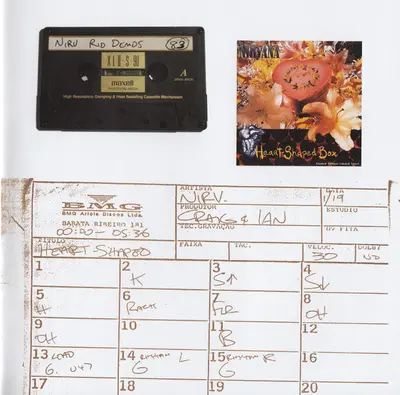 NIRV RIO DEMOS
XLII-S 90
maxell
A
High Resonance-Damping & Heat Resisting Cassette Mechanism
NIRVANA
Heart-Shaped Box
BMG
BMG Ariola Discos Ltda.
BARATA RIBEIRO 181
00:00 - 05:36
ARTISTA
NIRV.
DATA
1/19
PRODUTOR
CRAIG & IAN
ESTUDIO
TEC. GRAVAÇÃO
Nº FITA
TÍTULO
HEART-SHAPED
FAIXA
TAC.
VELOC.
30
DOLBY
NO
1
2
K
3
S↑
4
S↓
5
H
6
RACK
7
FLR
8
OH
9
OH
10
11
B
12
13 LEAD
G. U47
14
L
G
15
R
G
16
17
18
19
20